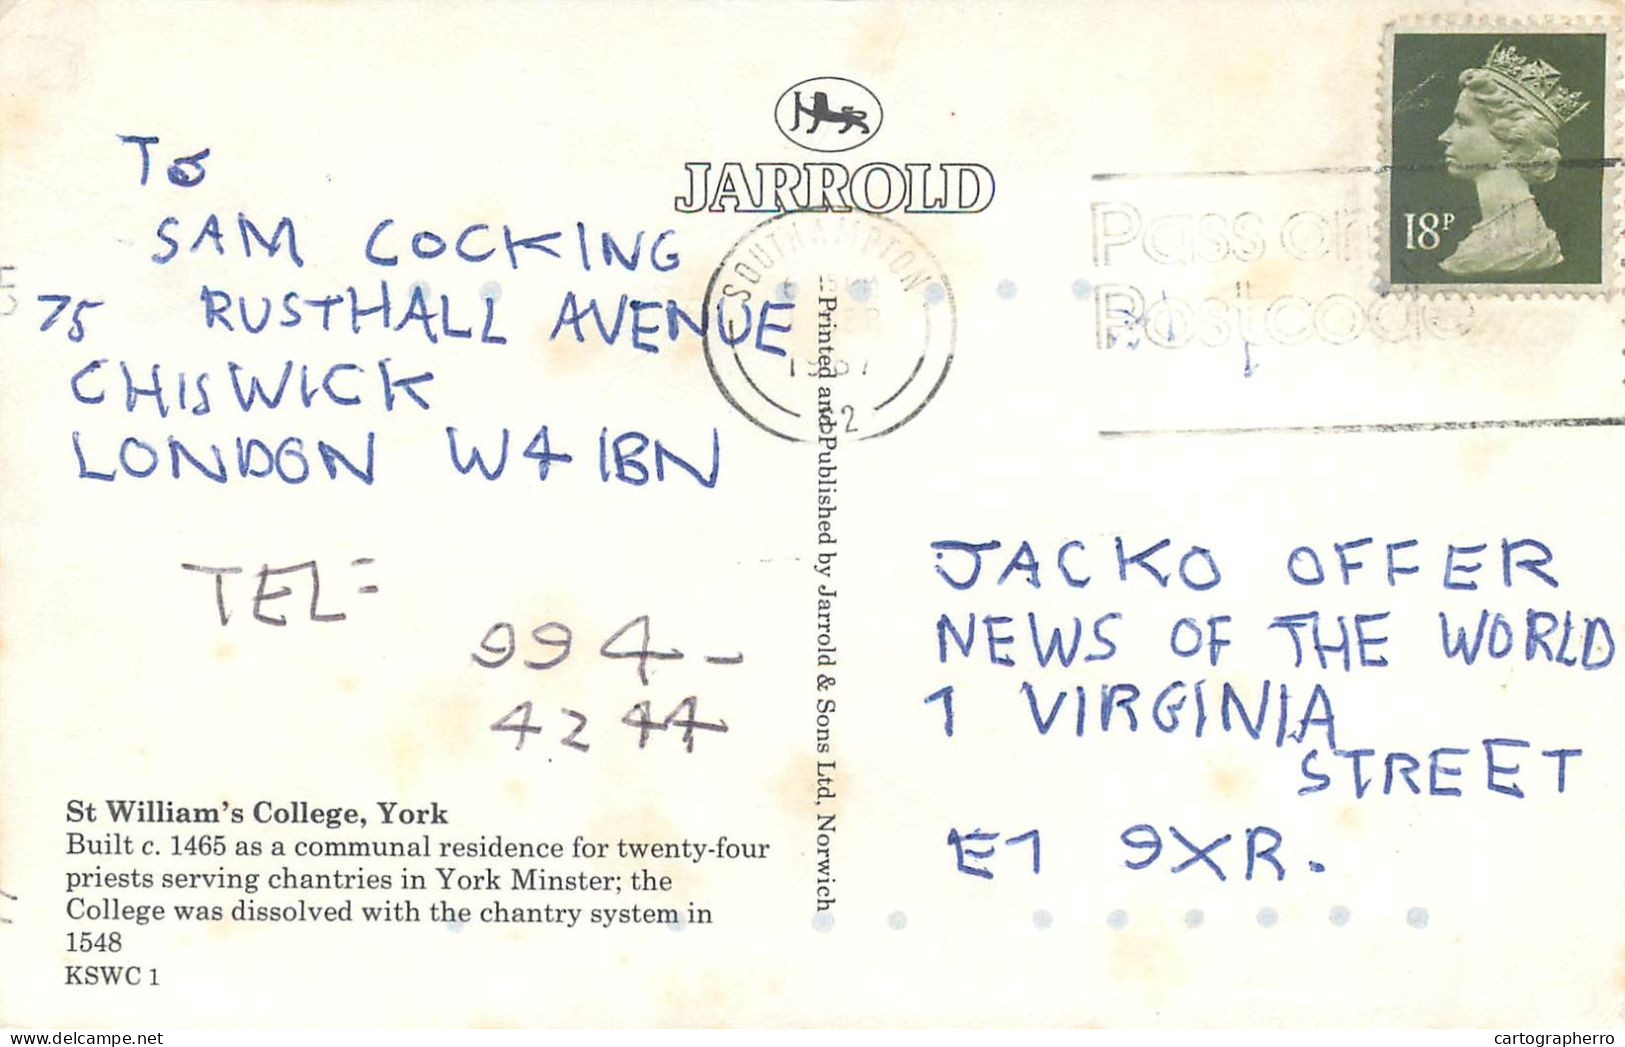 To
SAM COCKING
75 RUSTHALL AVENUE
CHISWICK
LONDON W4 1BN
TEL=
994-
4244
St William's College, York
Built c. 1465 as a communal residence for twenty-four
priests serving chantries in York Minster; the
College was dissolved with the chantry system in
1548
KSWC 1
JARROLD
Printed and Published by Jarrold & Sons Ltd, Norwich
SOUTHAMPTON
Pass on
Postcode
18P
JACKO OFFER
NEWS OF THE WORLD
1 VIRGINIA
STREET
E1 9XR.
cartographerro